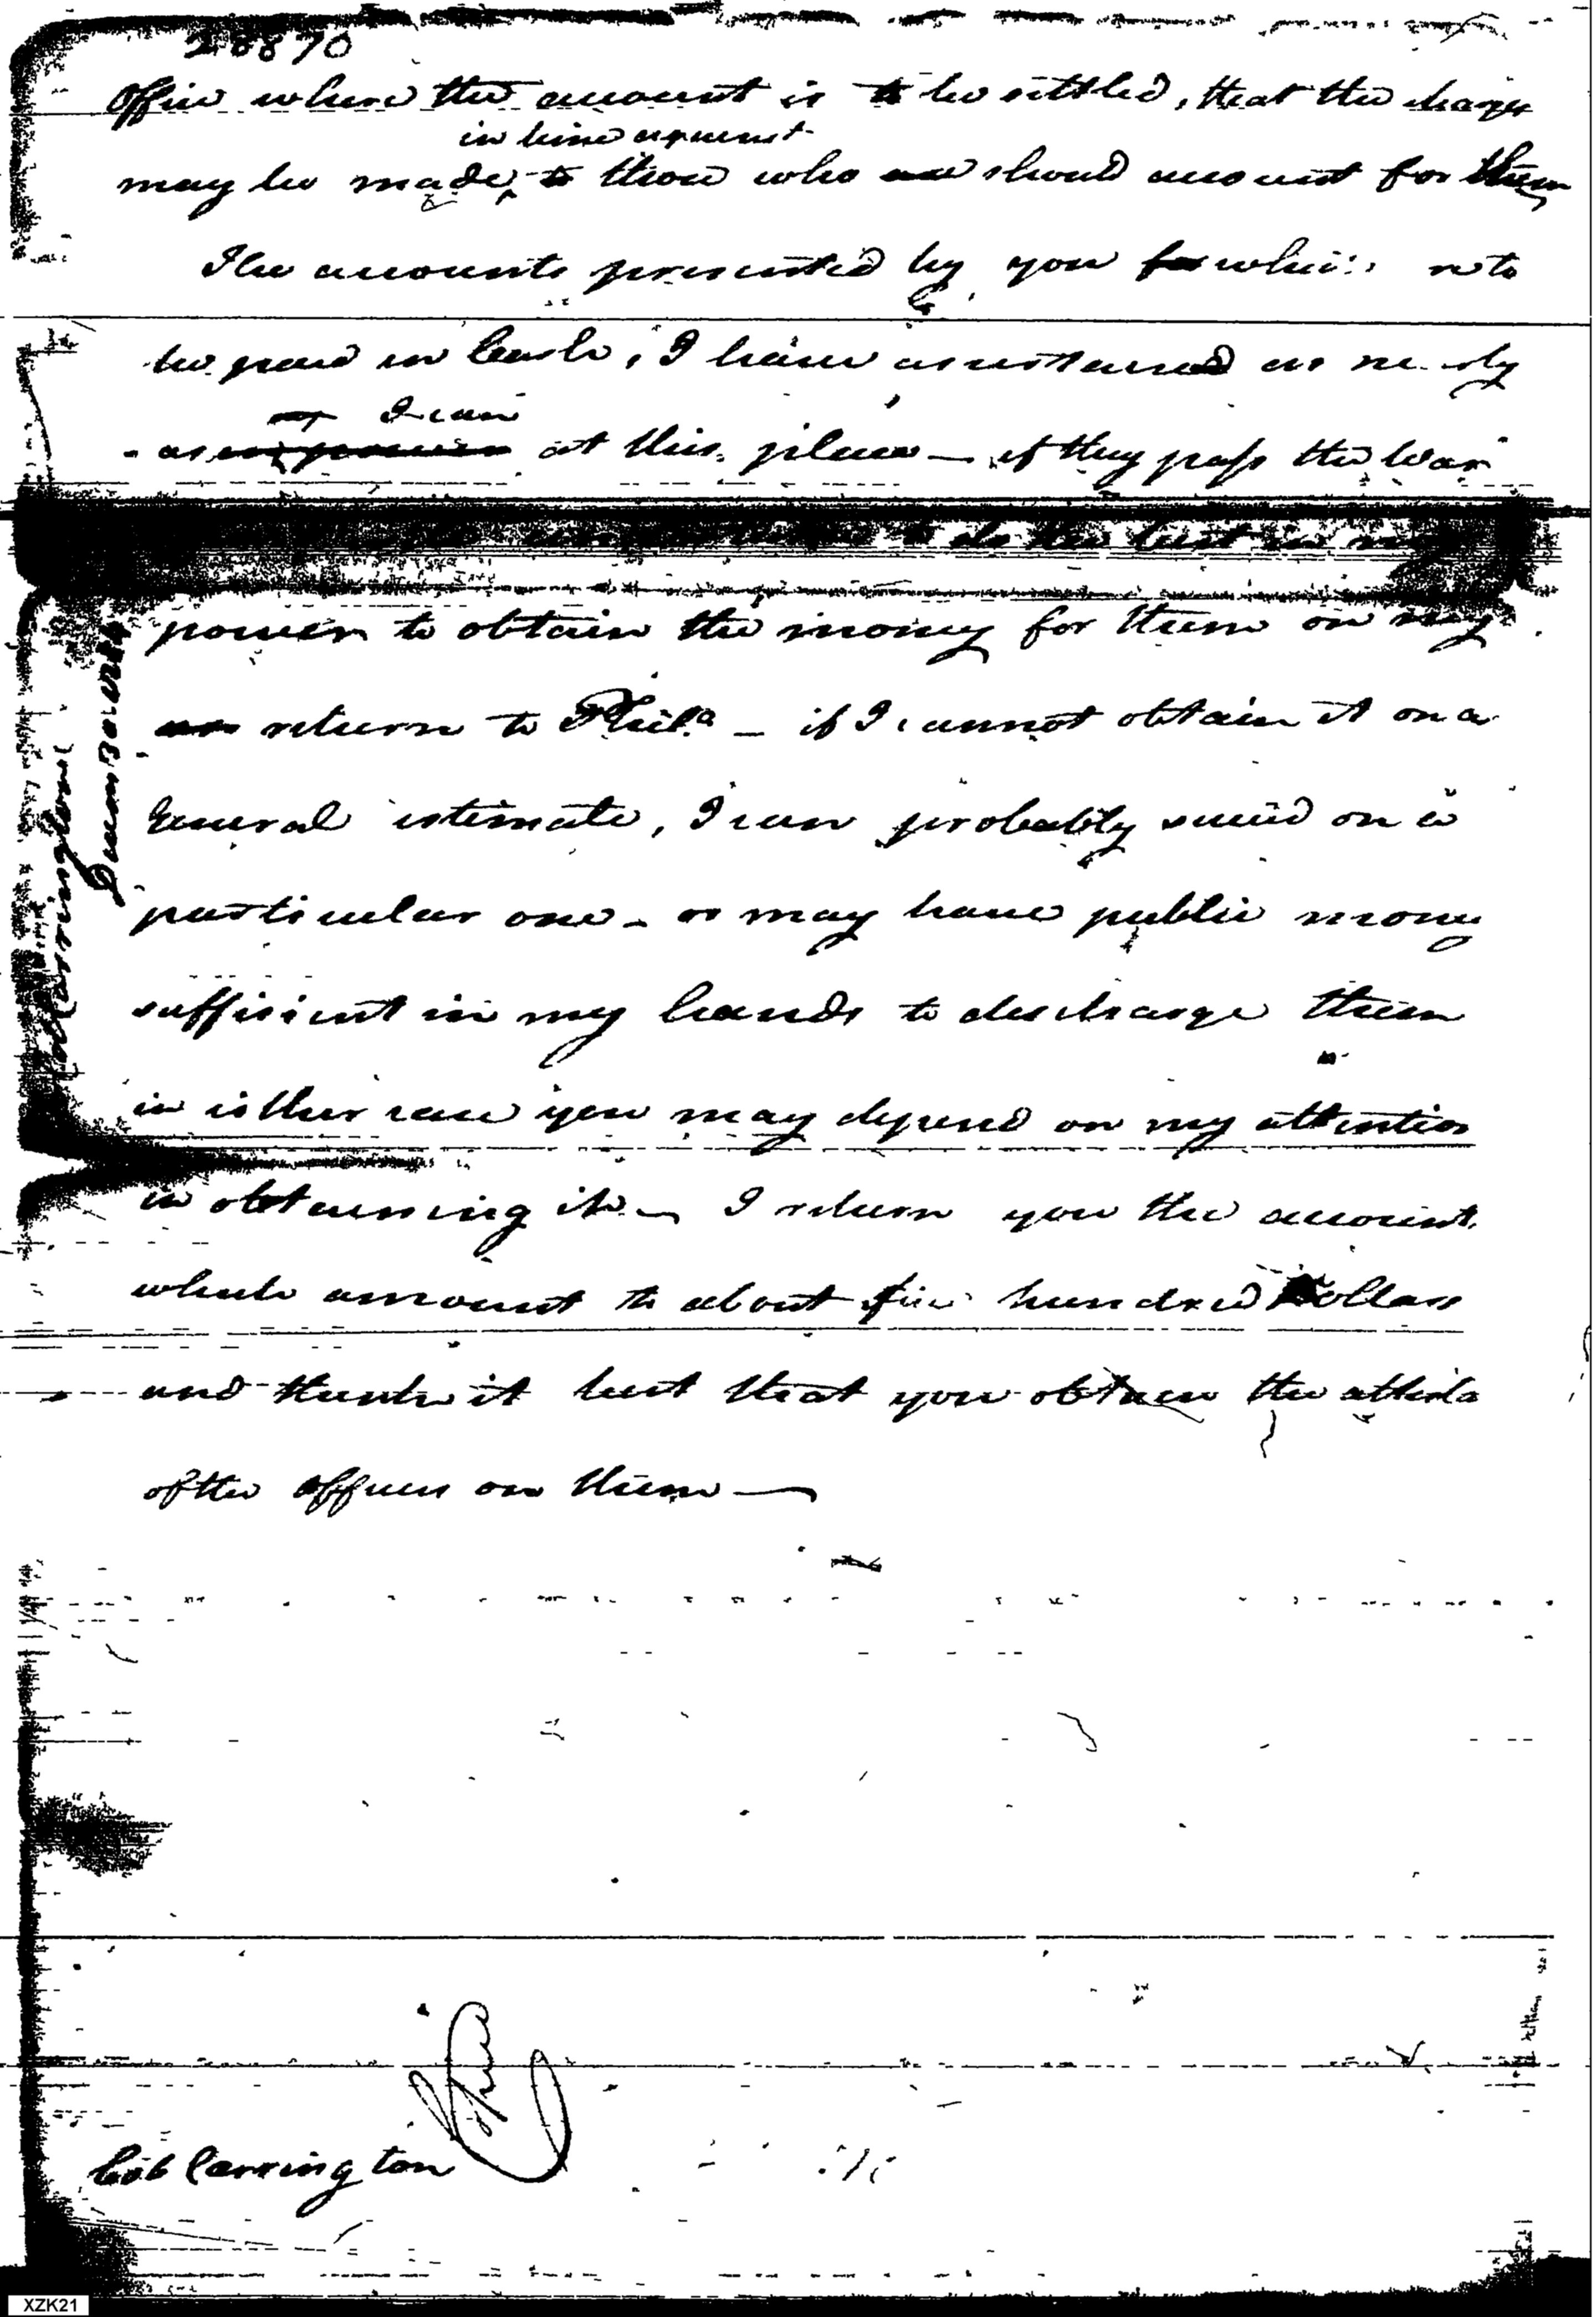 28870
office where the account is to be settled, that the charges
in time again st
may be made, to those who are should account for them
The accounts presented by you for which is to
be paid in Cash, I have ascertained as nearly
I can
as in power at this place — if they pass the War
to do the best in my
power to obtain the money for them on my
return to Phila — if I cannot obtain it on a
General estimate, I can probably succeed on a
particular one — or may have public money
sufficient in my hands to discharge them
in either case you may depend on my attention
in obtaining it — I return you the account
which amount to about five hundred Dollars
and think it best that you obtain the attesta
of the officers on them —
Col Carrington
Col Carrington
XZK21